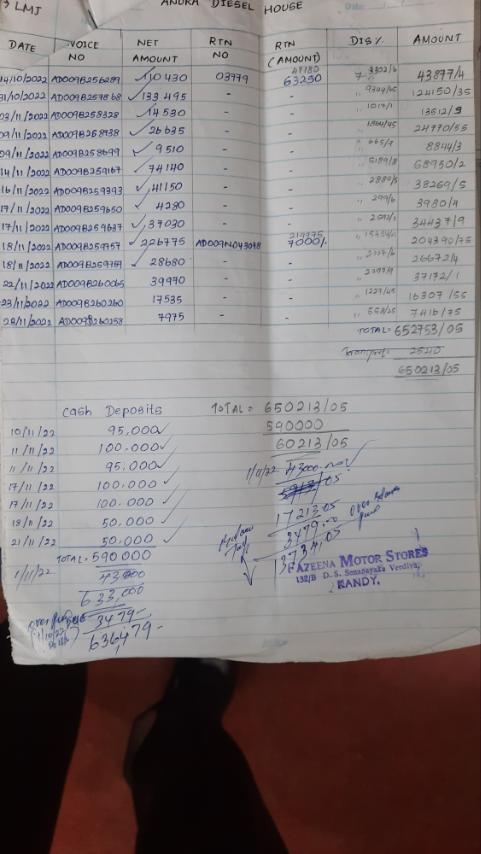 LMJ
ANURA DIESEL HOUSE
DATE INVOICE NO NET AMOUNT RTN NO RTN (AMOUNT) DIS% AMOUNT
14/10/2022 AD009B256289 110430 03779 47180 63250 7 3302/6 43877/4
31/10/2022 AD009B257868 133495 - - 9344/65 124150/35
03/11/2022 AD009B258328 14530 - - 1017/1 13512/9
09/11/2022 AD009B258738 26635 - - 1864/45 24770/55
09/11/2022 AD009B258699 9510 - - 665/7 8844/3
14/11/2022 AD009B259167 74140 - - 5189/8 68950/2
16/11/2022 AD009B259393 41150 - - 2880/5 38269/5
17/11/2022 AD009B259650 4280 - - 299/6 3980/4
17/11/2022 AD009B259637 37030 - - 2592/1 34437/9
18/11/2022 AD009B259757 226775 AD009N043048 219775 7000/. 204390/75
18/11/2022 AD009B259759 28680 - - 2007/6 26672/4
22/11/2022 AD009B260065 39970 - - 37172/1
23/11/2022 AD009B260260 17535 - - 1227/45 16307/55
23/11/2022 AD009B260258 7975 - - 558/25 7416/75
TOTAL= 652753/05
2540
650213/05
Cash Deposits TOTAL = 650213/05
10/11/22 95,000 590000
11/11/22 100.000 60213/05
11/11/22 95.000 1/11/22 43000.00
17/11/22 100.000
17/11/22 100.000 17213.05
18/11/22 50.000 3479.00
21/11/22 50.000 13734.05
TOTAL= 590000
1/11/22 43000
633,000
3479-
636479-
FAZEENA MOTOR STORES
132/B D. S. Senanayake Veediya,
KANDY.